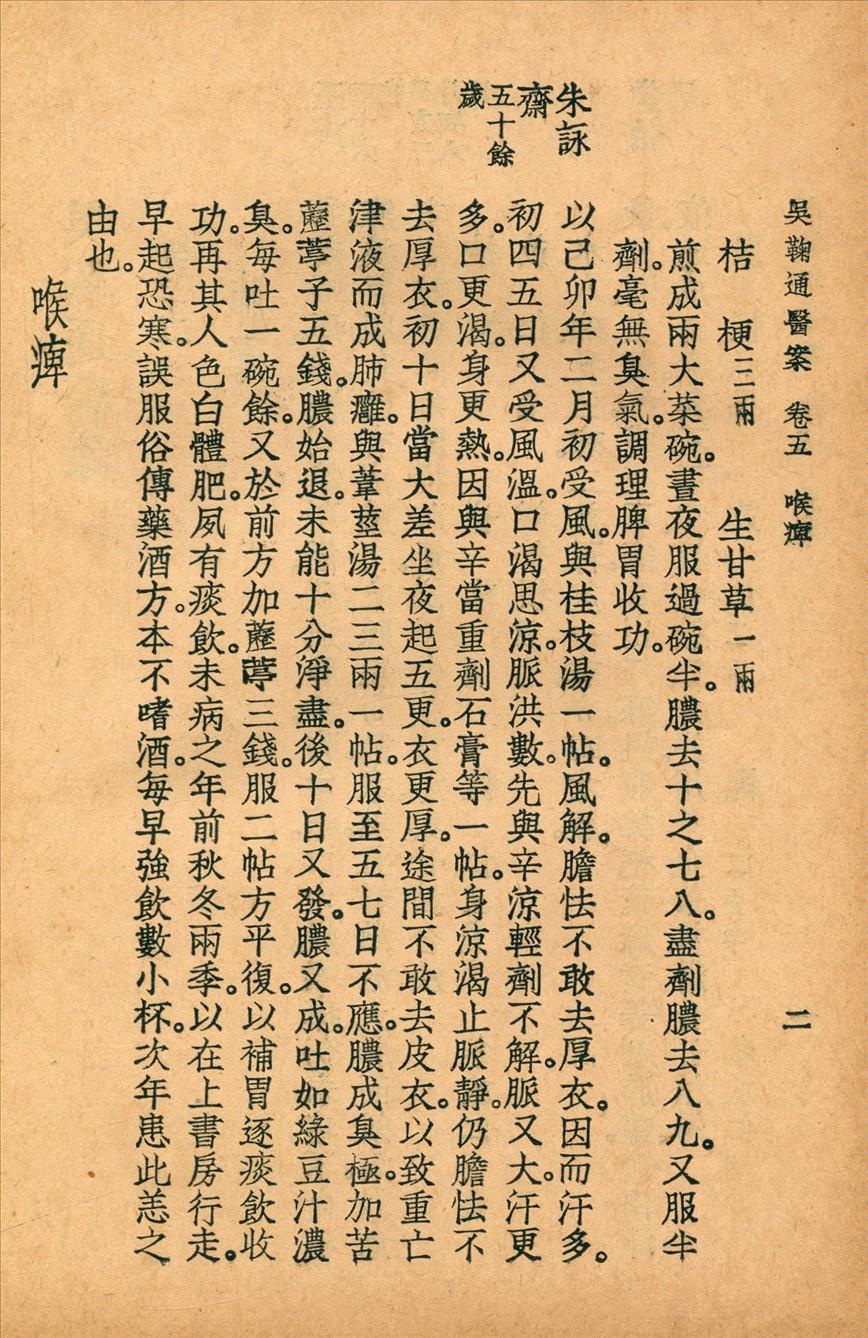 吳鞠通醫案　卷五　喉痺　二
桔　梗三兩　　生甘草一兩
煎成兩大菜碗。晝夜服過碗半。膿去十之七八。盡劑膿去八九。又服半
劑。毫無臭氣。調理脾胃收功。
朱詠
齋
五十餘
歲
以己卯年二月初受風。與桂枝湯一帖。風解。膽怯不敢去厚衣。因而汗多。
初四五日又受風溫。口渴思涼。脈洪數。先與辛涼輕劑不解。脈又大。汗更
多。口更渴。身更熱。因與辛當重劑石膏等一帖。身涼渴止脈靜。仍膽怯不
去厚衣。初十日當大差坐夜起五更。衣更厚。途間不敢去皮衣。以致重亡
津液而成肺癰。與葦莖湯二三兩一帖。服至五七日不應。膿成臭極。加苦
藶葶子五錢。膿始退。未能十分淨盡。後十日又發。膿又成。吐如綠豆汁濃
臭。每吐一碗餘。又於前方加藶葶三錢。服二帖方平復。以補胃逐痰飲收
功。再其人色白體肥。夙有痰飲。未病之年前秋冬兩季。以在上書房行走。
早起恐寒。誤服俗傳藥酒方。本不嗜酒。每早強飲數小杯。次年患此恙之
由也。
喉痺